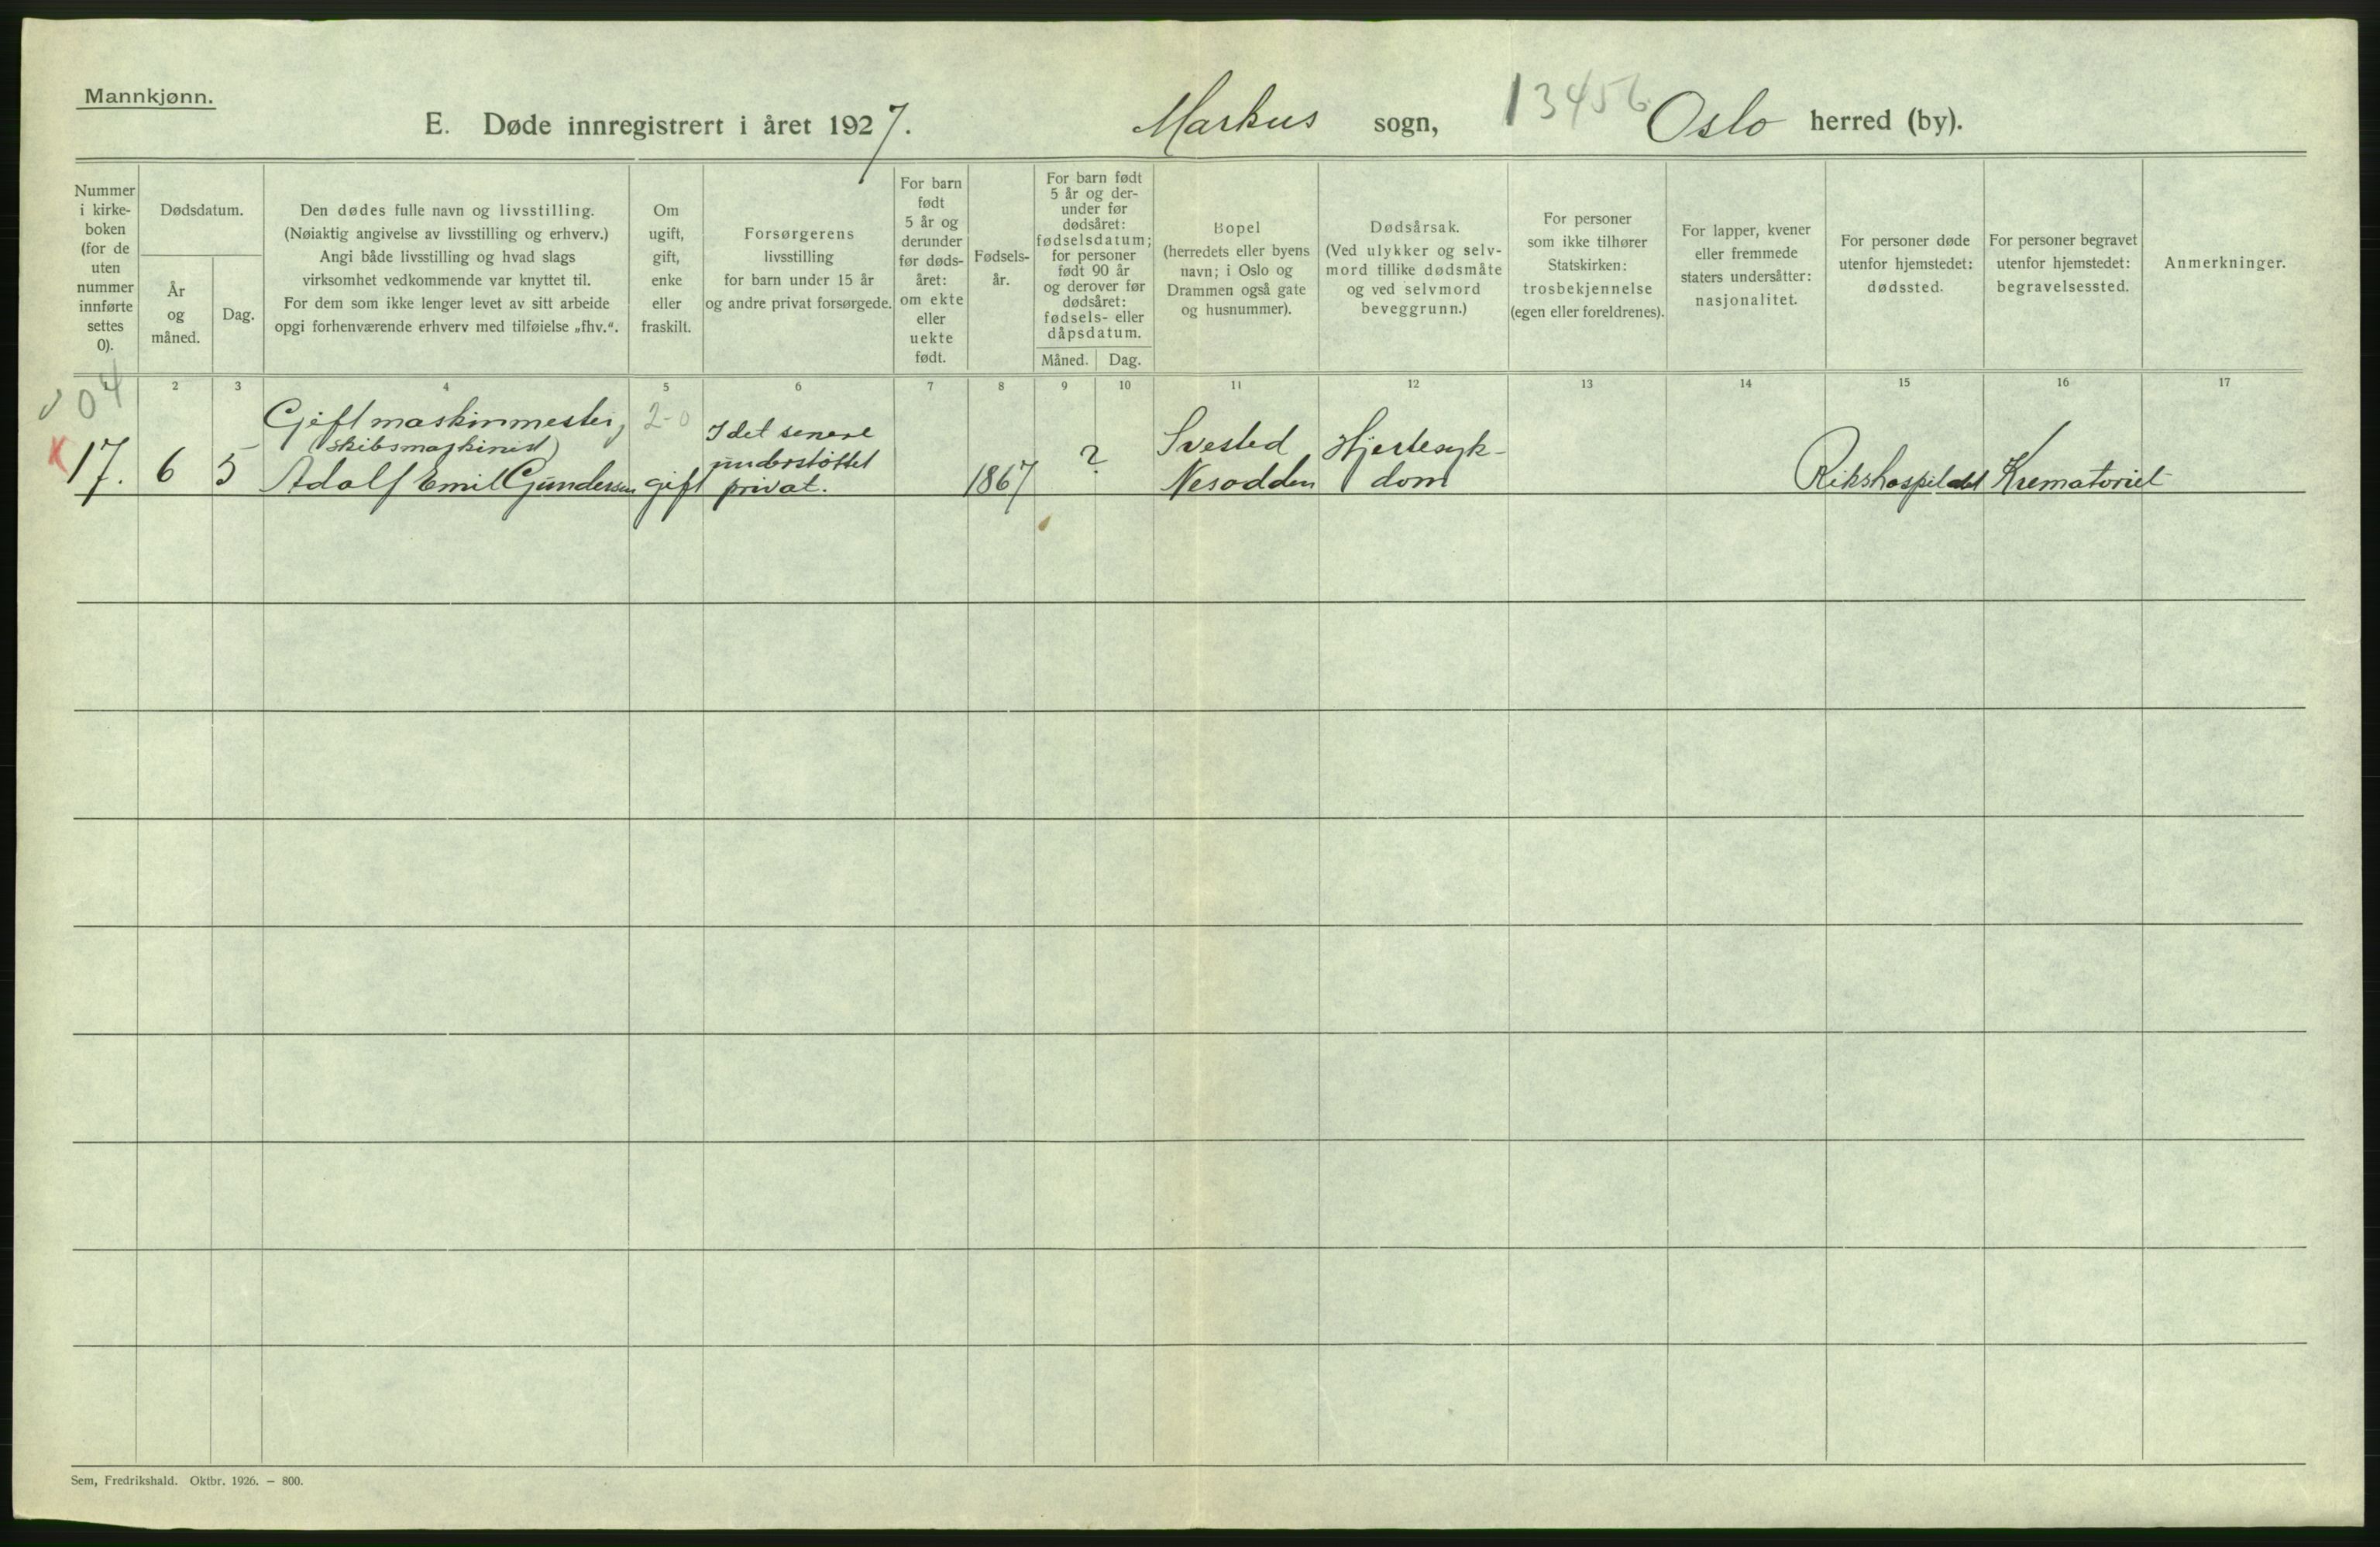 Mannkjønn.
E. Døde innregistrert i året 1927. Markus sogn, 13456 Oslo herred (by).
Nummer
i kirke-
boken
(for de
uten
nummer
innførte
settes
0).
Dødsdatum.
År
og
måned.
Dag.
Den dødes fulle navn og livsstilling.
(Nøiaktig angivelse av livsstilling og erhverv.)
Angi både livsstilling og hvad slags
virksomhet vedkommende var knyttet til.
For dem som ikke lenger levet av sitt arbeide
opgi forhenværende erhverv med tilføielse „fhv.“.
Om
ugift,
gift,
enke
eller
fraskilt.
Forsørgerens
livsstilling
for barn under 15 år
og andre privat forsørgede.
For barn
født
5 år og
derunder
før døds-
året:
om ekte
eller
uekte
født.
Fødsels-
år.
For barn født
5 år og der-
under før
dødsåret:
fødselsdatum;
for personer
født 90 år
og derover før
dødsåret:
fødsels- eller
dåpsdatum.
Måned. Dag.
Bopel
(herredets eller byens
navn; i Oslo og
Drammen også gate
og husnummer).
Dødsårsak.
(Ved ulykker og selv-
mord tillike dødsmåte
og ved selvmord
beveggrunn.)
For personer
som ikke tilhører
Statskirken:
trosbekjennelse
(egen eller foreldrenes).
For lapper, kvener
eller fremmede
staters undersåtter:
nasjonalitet.
For personer døde
utenfor hjemstedet:
dødssted.
For personer begravet
utenfor hjemstedet:
begravelsessted.
Anmerkninger.
2 3 4 5 6 7 8 9 10 11 12 13 14 15 16 17
04
17. 6 5
Gift maskinmester,
skibsmaskinist)
Adolf Emil Gundersen
2-0
gift
I det senere
understøttet
privat.
1867
?
Svested
Nesodden
Hjertesyk-
dom
Rikshospitalet
Krematoriet
Sem, Fredrikshald. Oktbr. 1926. — 800.